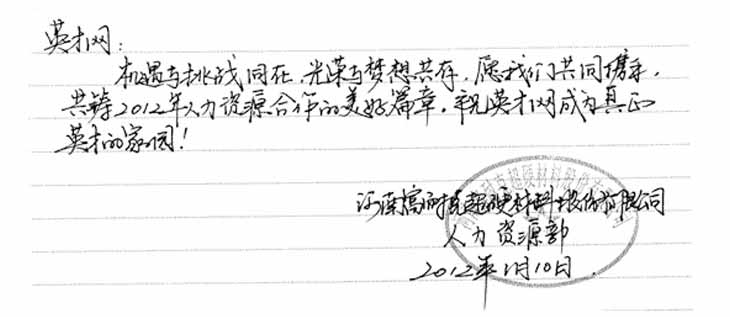 英才网：
机遇与挑战同在，光荣与梦想共存，愿我们共同携手，
共铸2012年人力资源合作的美好篇章，祝英才网成为真正
英才的家园！
河南富耐克超硬材料股份有限公司
人力资源部
2012年1月10日